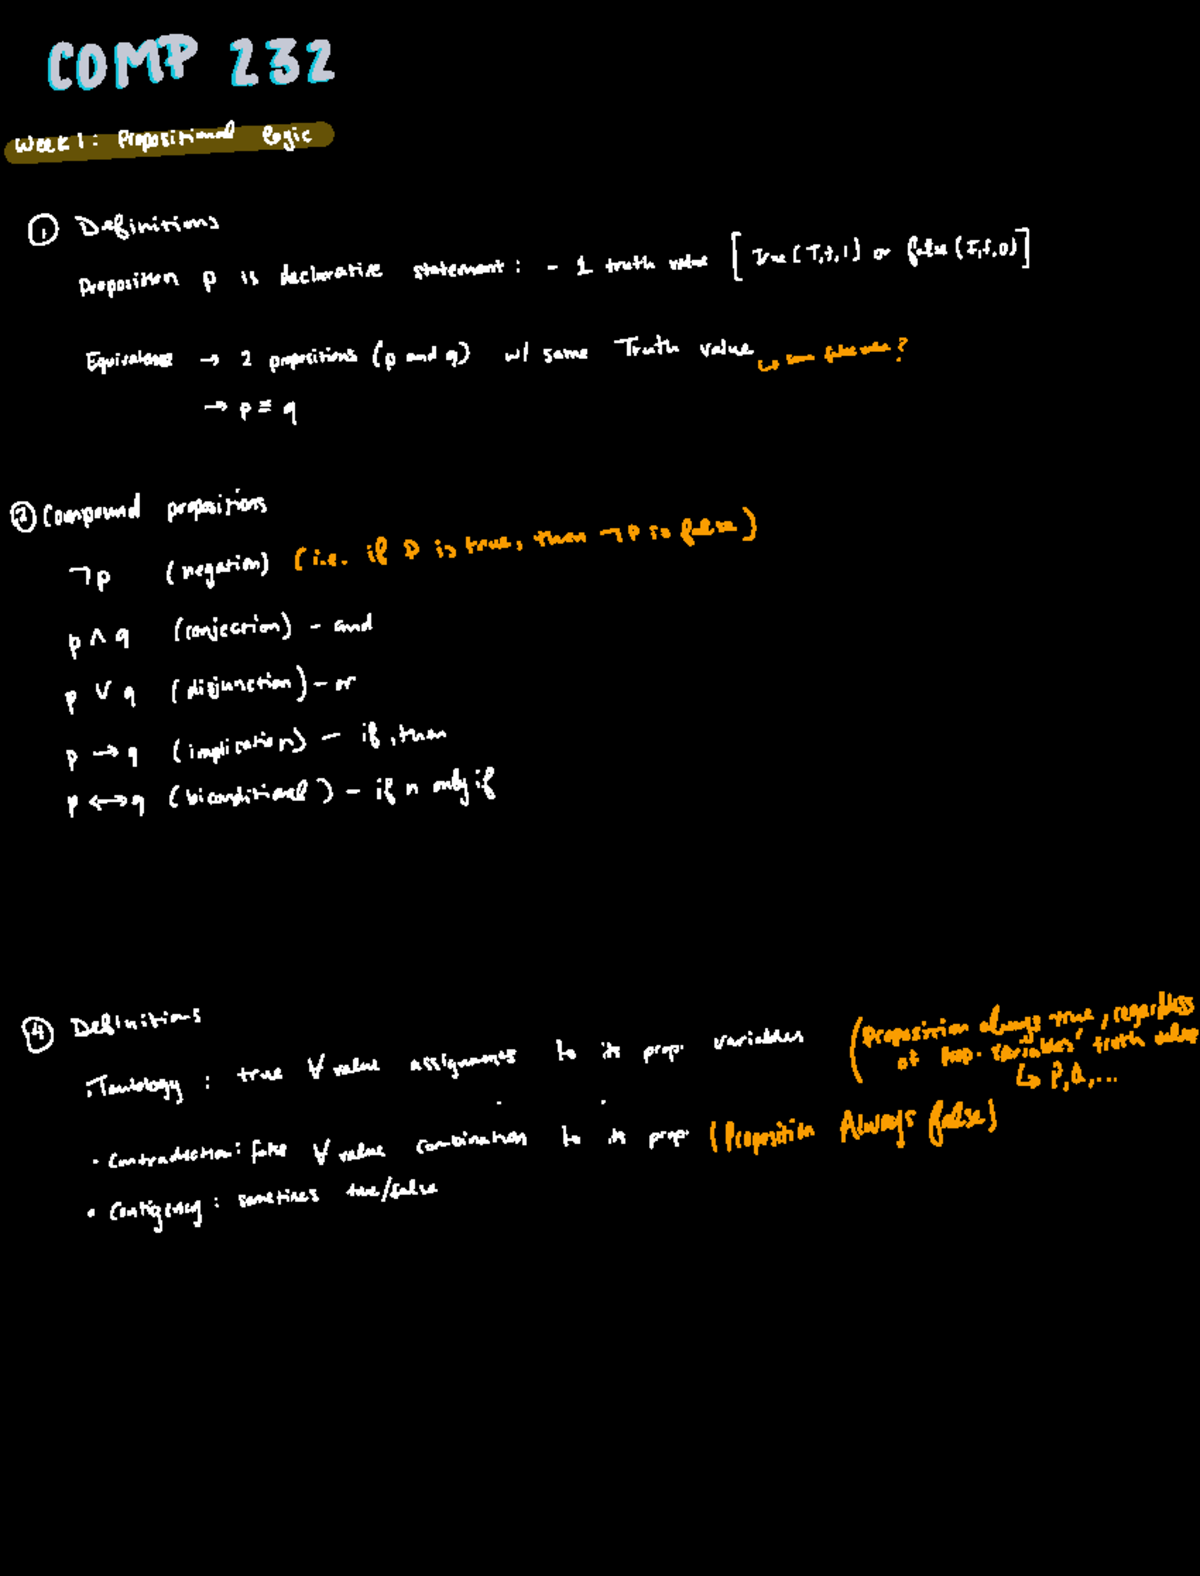 COMP 232
Week 1: Propositional Logic
① Definitions
Proposition p is declarative statement: - 1 truth value [True (T,t,1) or false (F,f,0)]
Equivalence → 2 propositions (p and q) w/ same Truth value ↳ same false value?
→ p ≡ q
② Compound propositions
¬p (negation) (i.e. if P is true, then ¬P is false)
p ∧ q (conjection) - and
p ∨ q (disjunction) - or
p → q (implication) - if, then
p ↔ q (biconditional) - if n only if
④ Definitions
Tautology: true ∀ value assignments to its prop. variables (Proposition always true, regardless
of prop. variables' truth value
↳ P,Q,...
• Contradiction: false ∀ value combination to its prop (Proposition Always false)
• Contigency: sometimes true/false